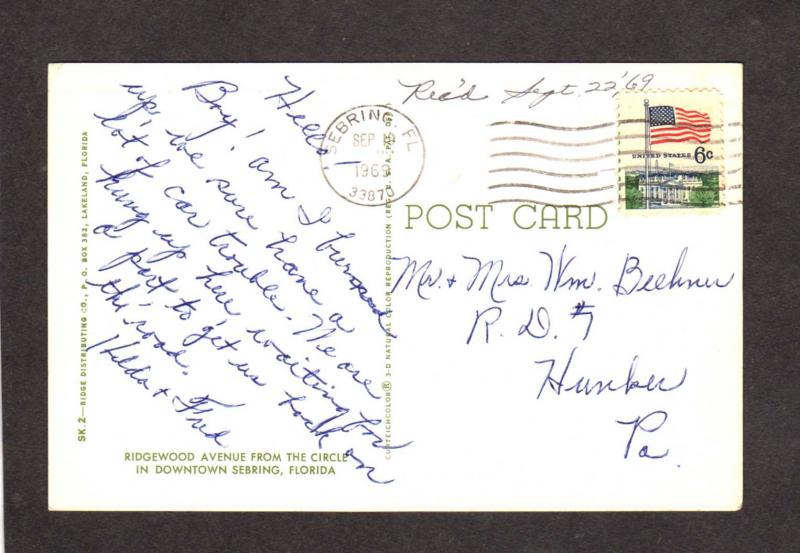 Hello -
Boy! am I burned
up, we sure have a
lot of car trouble. We are
hung up here waiting for
a part to get us back on
the road.
Hilda + Fred
Rec'd Sept. 22, '69
SEBRING, FL
SEP
1969
33870
UNITED STATES 6c
POST CARD
Mr. + Mrs. Wm. Beehner
R. D. #7
Hunker
Pa.
SK. 2—RIDGE DISTRIBUTING CO., P. O. BOX 382, LAKELAND, FLORIDA
CURTEICHCOLOR® 3-D NATURAL COLOR REPRODUCTION (REG'D. U.S.A. PAT. OFF.)
RIDGEWOOD AVENUE FROM THE CIRCLE
IN DOWNTOWN SEBRING, FLORIDA